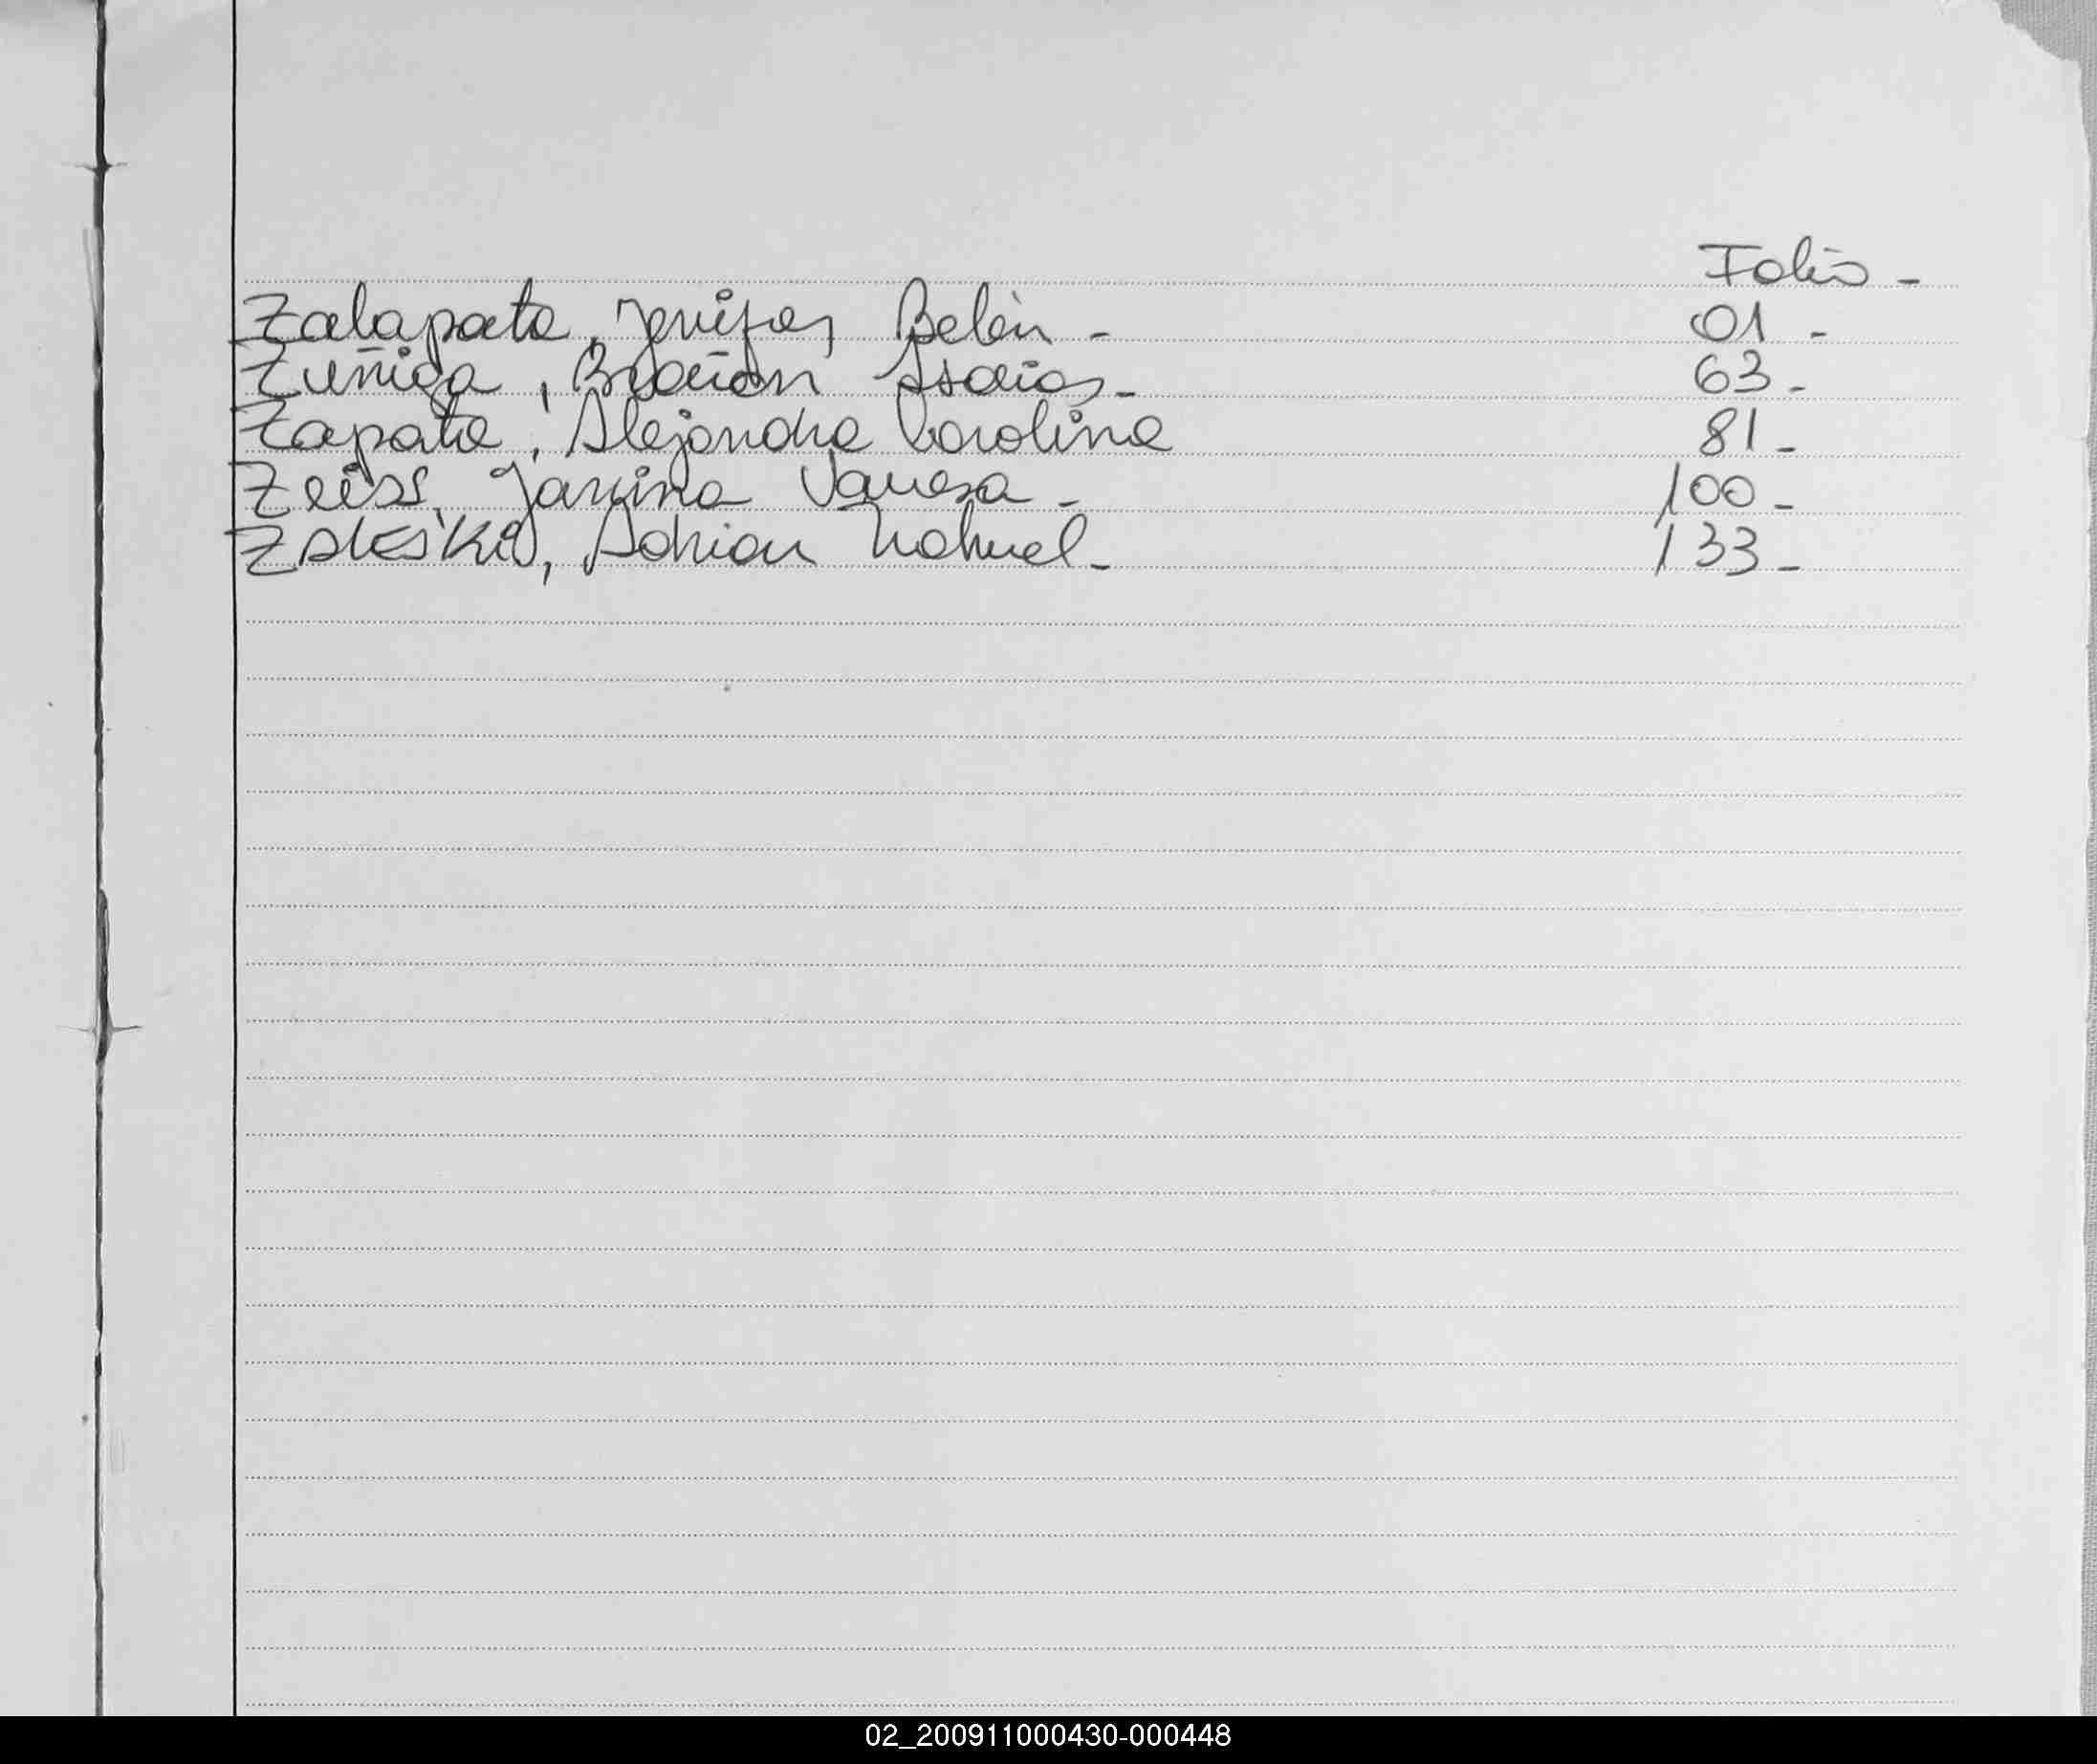 Folio -
Zalapata, Jenifer Belén - 01 -
Zuñiga, Braian Isaias - 63 -
Zapata, Alejandra Carolina 81 -
Zeiss, Janina Vanesa - 100 -
Adrian Nahuel - 133 -
02_200911000430-000448